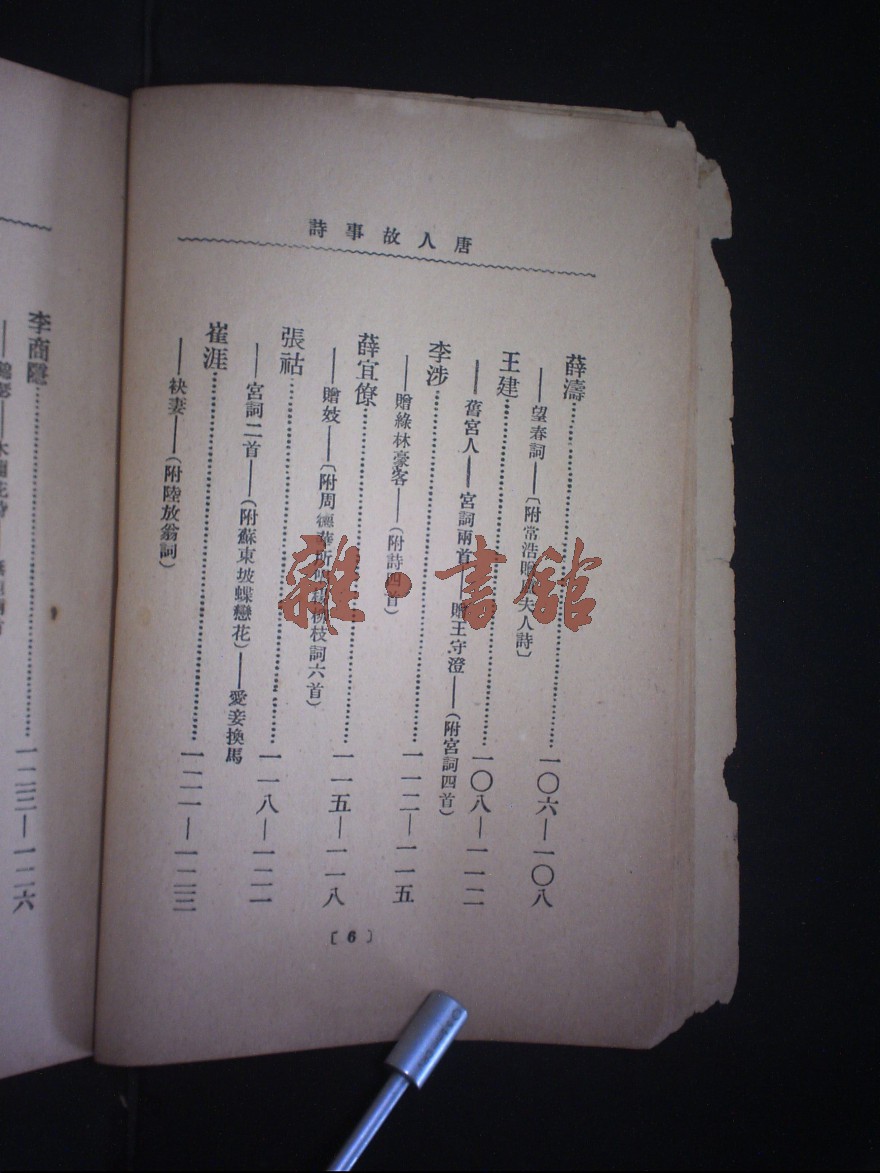 唐人故事詩
薛濤……一〇六—一〇八
——望春詞——〔附常浩 夫人詩〕
王建……一〇八—一一二
——舊宮人——宮詞兩首——贈王守澄——(附宮詞四首)
李涉……一一二—一一五
——贈綠林豪客——(附詩四首)
薛宜僚……一一五—一一八
——贈妓——〔附周德華所 柳枝詞六首)
張祜……一一八—一二一
——宮詞二首——(附蘇東坡蝶戀花)——愛妾換馬
崔涯……一二一—一二三
——袂妻——(附陸放翁詞)
〔6〕
李商隱……一二三—一二六
雜·書館